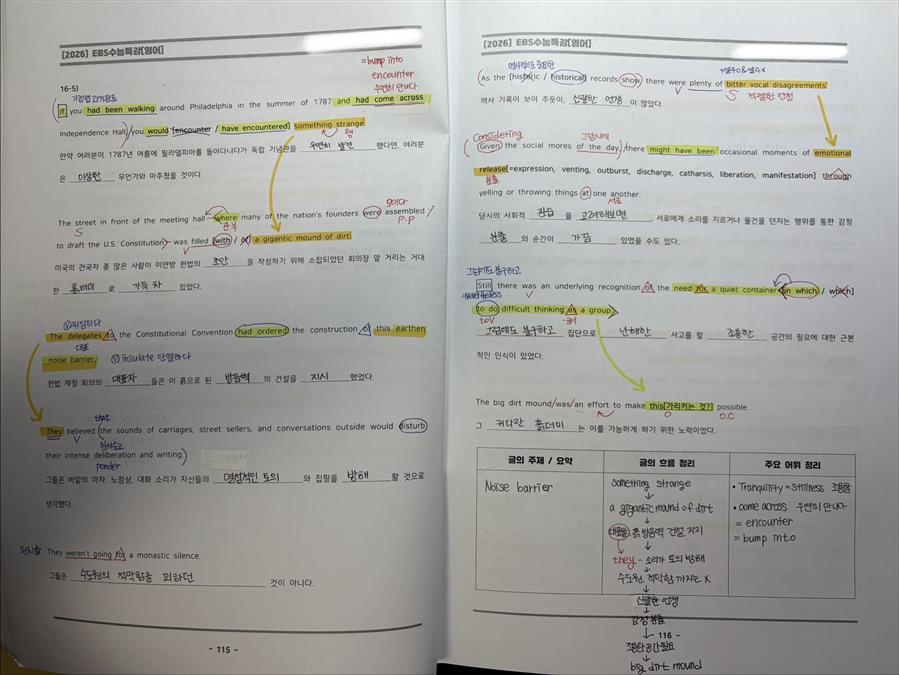 [2026] EBS수능특강[영어]
= bump into
encounter
우연히 만나다
16-5)
가정법 과거완료
If you had been walking around Philadelphia in the summer of 1787 and had come across
Independence Hall, you would [encounter / have encountered] something strange.
만약 여러분이 1787년 여름에 필라델피아를 돌아다니다가 독립 기념관을 우연히 발견 했다면, 여러분
은 이상한 무언가와 마주쳤을 것이다.
모이다
The street in front of the meeting hall — where many of the nation's founders were assembled
S
관부
P.P
to draft the U.S. Constitution — was filled [with / of] a gigantic mound of dirt.
V
미국의 건국자 중 많은 사람이 미연방 헌법의 초안 을 작성하기 위해 소집되었던 회의장 앞 거리는 거대
한 흙더미 로 가득 차 있었다.
ⓥ위임하다
The delegates to the Constitutional Convention had ordered the construction of this earthen
대표
noise barrier. ⓥ insulate 단열하다
헌법 제정 회의의 대표자 들은 이 흙으로 된 방음벽 의 건설을 지시 했었다.
that
They believed the sounds of carriages, street sellers, and conversations outside would disturb
심사숙고
their intense deliberation and writing.
ponder
그들은 바깥의 마차, 노점상, 대화 소리가 자신들의 열성적인 토의 와 집필을 방해 할 것으로
생각했다.
위치☆ They weren't going for a monastic silence.
그들은 수도원의 적막함을 꾀하던 것이 아니다.
- 115 -
[2026] EBS수능특강[영어]
역사적으로 중요한
As the [historic / historical] records show, there were plenty of bitter vocal disagreements.
V
S
역사 기록이 보여 주듯이, 신랄한 언쟁 이 많았다.
Considering
그당시의
Given the social mores of the day, there might have been occasional moments of emotional
release[=expression, venting, outburst, discharge, catharsis, liberation, manifestation] through
분출
yelling or throwing things at one another.
서로
당시의 사회적 관습 을 고려해보면 서로에게 소리를 지르거나 물건을 던지는 행위를 통한 감정
분출 의 순간이 가끔 있었을 수도 있다.
그럼에도 불구하고
Still there was an underlying recognition of the need for a quiet container [in which / which]
=Nevertheless
V
S
to do difficult thinking as a group.
toV
그럼에도 불구하고 집단으로 난해한 사고를 할 조용한 공간의 필요에 대한 근본
적인 인식이 있었다.
The big dirt mound was an effort to make this[가리키는 것?] possible.
O
O.C
그 커다란 흙더미 는 이를 가능하게 하기 위한 노력이었다.
글의 주제 / 요약
글의 흐름 정리
주요 어휘 정리
Noise barrier
something strange
↓
a gigantic mound of dirt
↓
대표들 흙 방음벽 건설 지시
↓
they - 소리가 토의 방해
↓
수도원 적막함 까지는 X
↓
신랄한 언쟁
↓
감정 분출
↓
조용한 공간 필요
↓
big dirt mound
• Tranquility = stillness 조용함
• come across 우연히 만나다
= encounter
= bump into
- 116 -